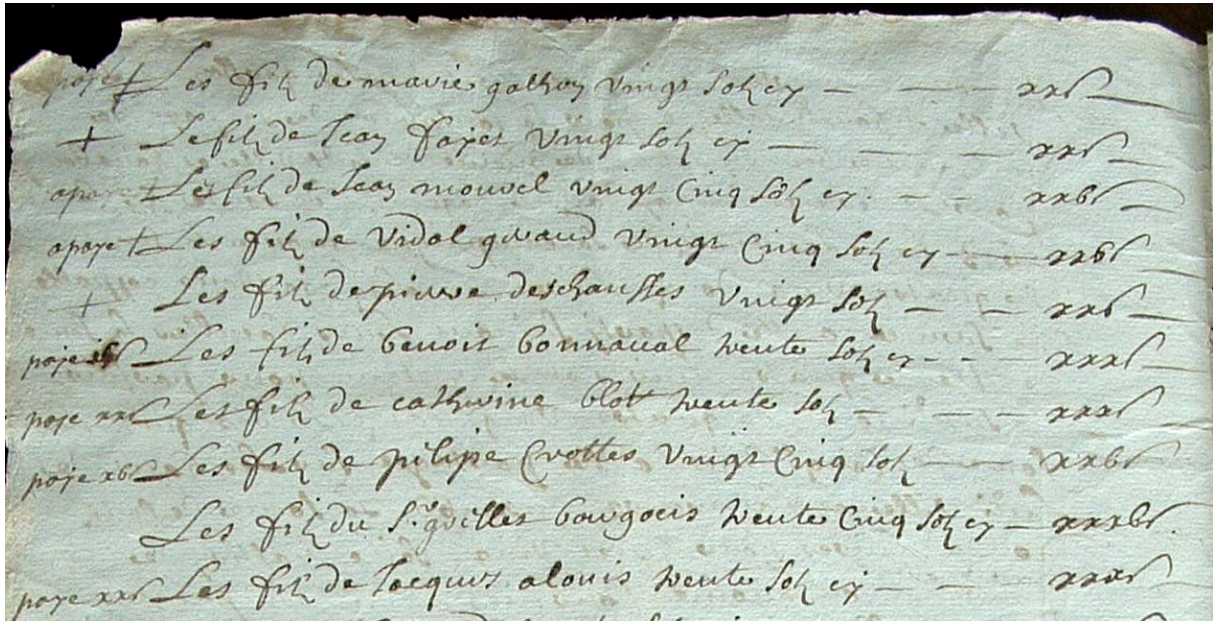 paye + Les filz de marie galhon vingt solz cy — — — xx s
+ Le filz de Jean fayet vingt solz cy — — — xx s
apaye + Les filz de Jean mouvel vingt cinq solz cy. — — xxb s
apaye + Les filz de vidal giraud vingt cinq solz cy — — xxb s
+ Les filz de pierre deschausses vingt solz — — xx s
paye Les filz de benoit bonnaval trente solz cy - - — xxx s
paye xx s Les filz de catherine blot trente solz — — — xxx s
paye xb s Les filz de philipe Crottes vingt cinq solz — — xxb s
Les filz du Sr gilles bourgois trente cinq solz cy — xxxb s.
paye xx s Les filz de Jacques alouis trente solz cy — — xxx s